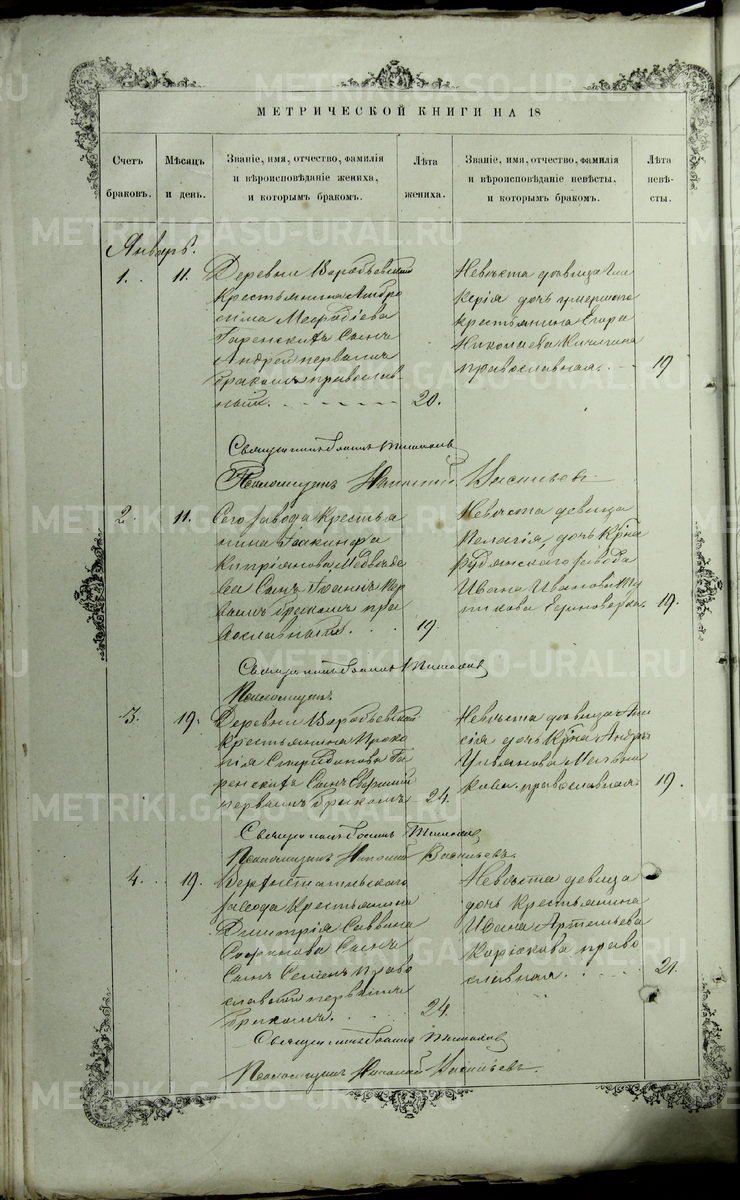 МЕТРИЧЕСКОЙ КНИГИ НА 18
Счетъ браковъ.
Мѣсяцъ и день.
Званіе, имя, отчество, фамилія
и вѣроисповѣданіе жениха,
и которымъ бракомъ.
Лѣта
жениха.
Званіе, имя, отчество, фамилія
и вѣроисповѣданіе невѣсты,
и которымъ бракомъ.
Лѣта
невѣ-
сты.
Январь.
1. 11.
Деревни Воробьевской
крестьянина Амвро
сима Меѳодіева
Гаренскихъ сынъ
Андрей первымъ
бракомъ православ-
ный. 20.
Невѣста дѣвица Гли
керія дочь умершаго
крестьянина Егора
Николаева
православная. 19
Священникъ Іоаннъ
Псаломщикъ Николай Васильевъ
2. 11.
Сего завода крестья
нина Іакинфа
Кипріянова Медвѣде
ва сынъ Іоаннъ пер
вымъ бракомъ пра
вославный. 19.
Невѣста девица
Пелагія, дочь кр-на
Рудянского завода
Ивана Иванова
единоверка 19.
Священникъ Іоаннъ
Псаломщикъ
3. 19.
Деревни Воробьевской
крестьянина Проко
пія Спиридонова Га
ренскихъ сынъ Евфимий
первымъ бракомъ 24.
Невѣста дѣвица
дочь кр-на Андрея
Ульянова
православная 19.
Священникъ Іоаннъ
Псаломщикъ Николай Васильевъ.
4. 19.
Верхнетагильскаго
завода крестьянина
Дмитрія Саввина
сынъ
сынъ Семенъ право
славный первымъ
бракомъ. 24.
Невѣста девица
дочь крестьянина
Ивана Артемьева
Карюкова право
славная. 21.
Священникъ Іоаннъ
Псаломщикъ Николай Васильевъ.
METRIKI.GASO-URAL.RU